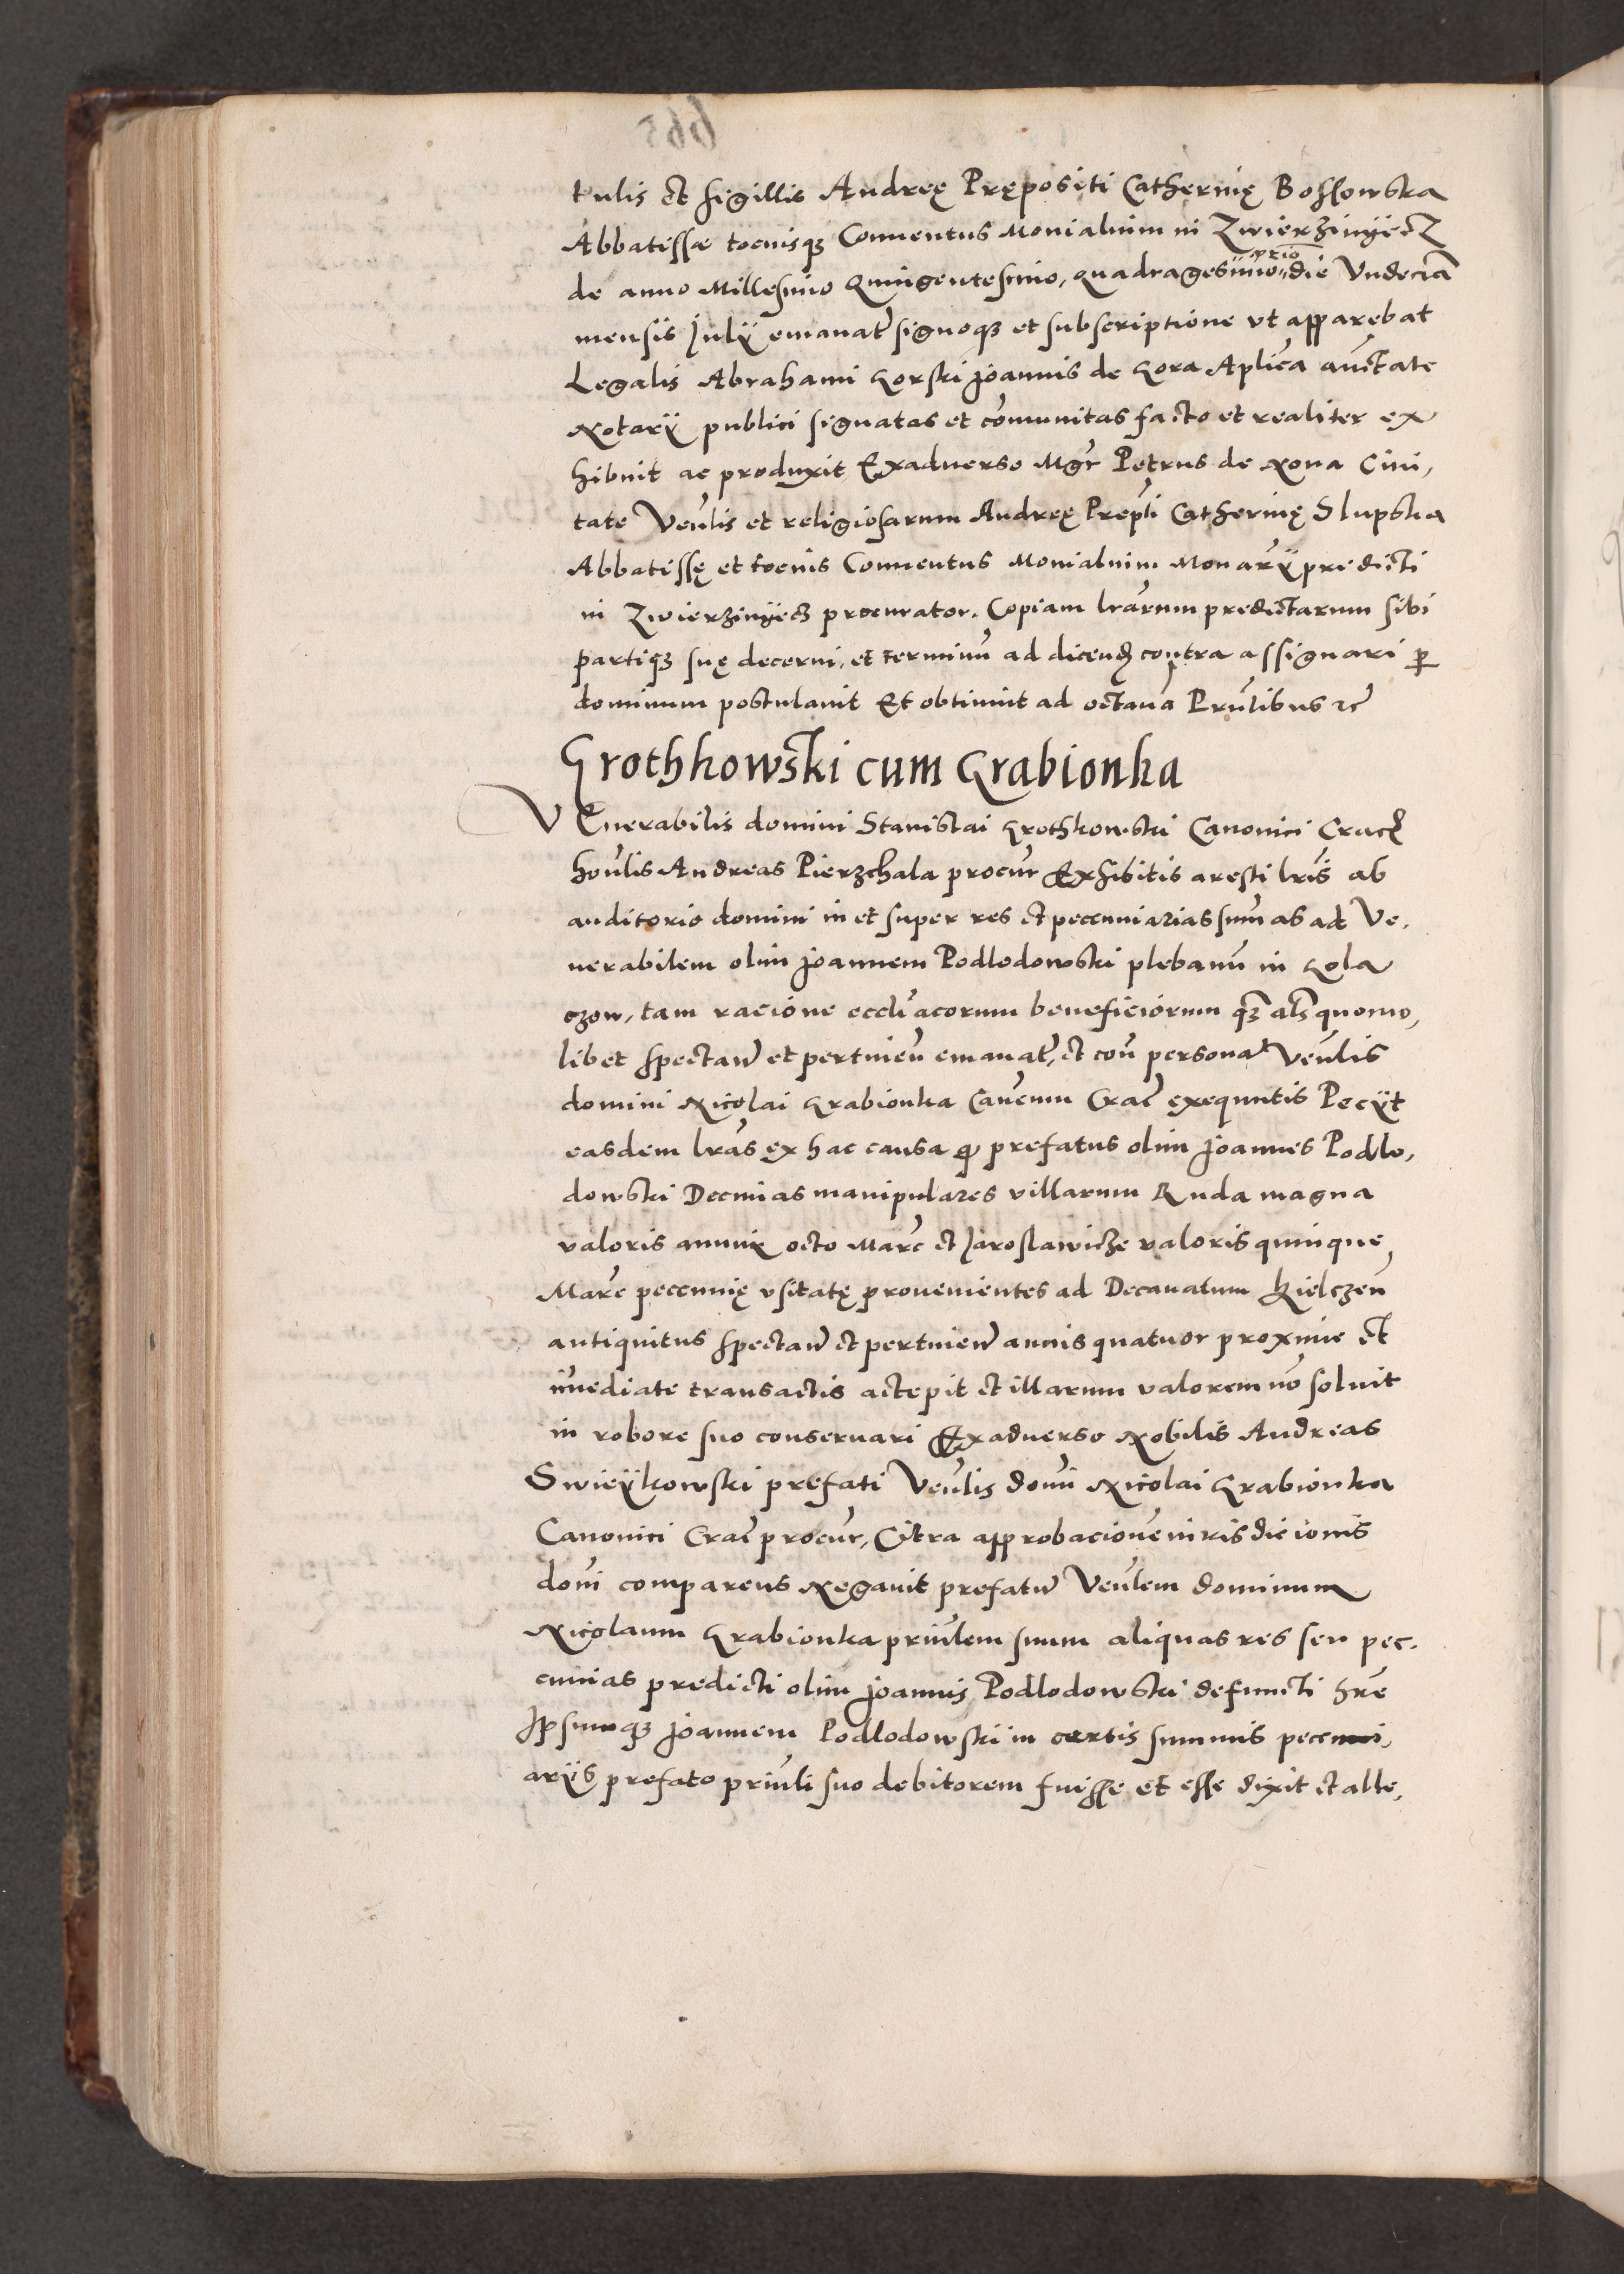 tulis et sigillis Andreę Prępositi Catherinę Bossowska
Abbatissæ tociusq̃ Conuentus Monialium in Zwierziniecz
de anno Millesimo Quingentesimo, quadragesimo primo die Vndecim̃
mensis Julÿ emanat̃ signoq̃ et subscriptione vt apparebat
Legalis Abrahami Gorski Joannis de Gora Aplica auctate
Notarÿ publici signatas et comunitas facto et realiter ex
hibuit ac produxit, Exaduerso Mgr̃ Petrus de Noua Ciui,
tate Veñlis et religiosarum Andreę Prepti Catherinę Slupska
Abbatissę et tocius Conuentus Monialium Monarÿ predicti
in Zwierzinÿecz procurator. Copiam lrarum predictarum sibi
partiq̃ suę decerni, et terminũ ad dicend̃ contra assignari p̱
dominum postulauit Et obtinuit ad octauã Pr̃ntibus ꝛc̃
Grothkowski cum Grabionka
VEnerabilis domini Stanislai Grothkowski Canonici Crac̃
hoñlis Andreas Pierzchala procur̃ Exhibitis aresti lris ab
auditorio domini in et super res et pecuniarias sum̃as ad Ve,
nerabilem olim Joannem Podlodowski plebanũ in Gola
czow, tam racione eccliacorum beneficiorum q̃ als quomo,
libet spectan̄ et pertinen̄ emanat̃, et coñ personã Veñlis
domini Nicolai Grabionka Canonici Crac̃ exequutis Pecÿt
easdem lras ex hac causa q̃ prefatus olim Joannes Podlo,
dowski Decimas manipulares villarum Ruda magna
valoris annui octo Marc̃ et Jaroslawicze valoris quinque
Marc̃ pecunię vsitatę prouenientes ad Decanatum Kielczeñ
antiquitus spectan̄ et pertinen̄ annis quatuor proxime et
im̃ediate transactis accepit et illarum valorem nõ soluit
in robore suo conseruari Exaduerso Nobilis Andreas
Swieÿkowski prefati Veñlis doñi Nicolai Grabionka
Canonici Crac̃ procur̃, Citra approbacionẽ iurisdicionis
doñi comparens Negauit prefatũ Veñlem dominum
Nicolaum Grabionka prin̄lem suum aliquas res seu pec,
cunias predicti olim Joannis Podlodowski defuncti hr̃e
Ipsumq̃ Joannem Podlodowski in certis summis pecuni,
arÿs prefato prin̄li suo debitorem fuisse et esse dixit et alle,